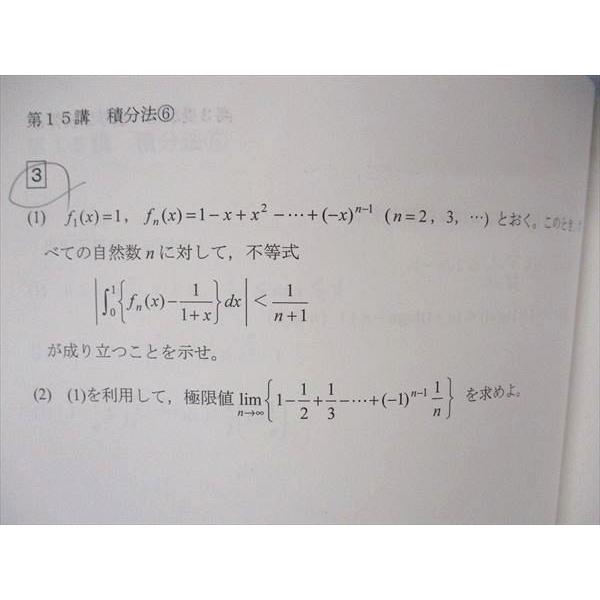 第15講 積分法⑥
3
(1) f₁(x)=1, fₙ(x)=1−x+x²−⋯+(−x)ⁿ⁻¹ (n=2, 3, ⋯) とおく。このとき,
べての自然数 n に対して,不等式
|∫₀¹{fₙ(x)−1/(1+x)}dx|<1/(n+1)
が成り立つことを示せ。
(2) (1)を利用して,極限値 lim_{n→∞}{1−1/2+1/3−⋯+(−1)ⁿ⁻¹ 1/n} を求めよ。